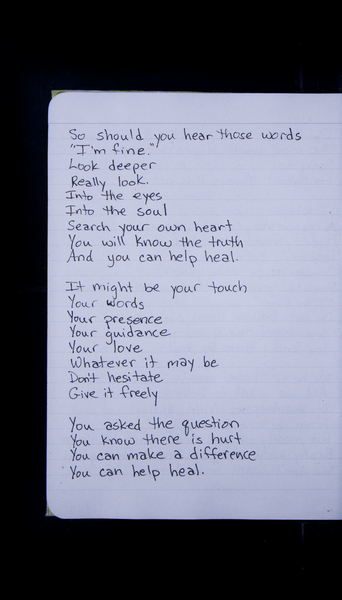 So should you hear those words
"I'm fine."
Look deeper
Really look.
Into the eyes
Into the soul
Search your own heart
You will know the truth
And you can help heal.
It might be your touch
Your words
Your presence
Your guidance
Your love
Whatever it may be
Don't hesitate
Give it freely
You asked the question
You know there is hurt
You can make a difference
You can help heal.